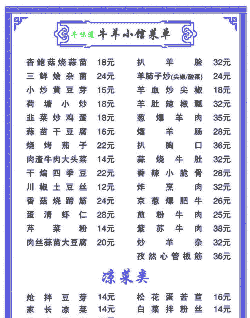 牛羊小馆菜单
杏鲍菇烧蒜苗 18元
三鲜烩杂菌 24元
小炒黄豆芽 15元
荷塘小炒 18元
韭菜炒鸡蛋 18元
蒜苗干豆腐 16元
烧椒茄子 22元
肉渣牛肉大头菜 14元
干煸四季豆 22元
川椒土豆丝 12元
香菇烧蹄筋 24元
蛋清虾仁 28元
芹菜粉 14元
肉丝蒜苗大豆腐 20元
扒羊脸 32元
羊脑子炒(尖椒/酸菜) 24元
羊血炒尖椒 18元
羊肚辣椒瓢 32元
葱爆羊肉 35元
爆羊肠 28元
扒胸口 36元
蒜烧牛肚 32元
香辣小脆骨 28元
炸烹肉 32元
京葱爆肥牛 26元
煎粉牛肉 25元
紫苏牛肉 38元
炒羊杂 32元
孜然心管板筋 36元
凉菜类
炝拌豆芽 14元
家长凉菜 14元
松花蛋苦苣 16元
白菜拌粉丝 14元